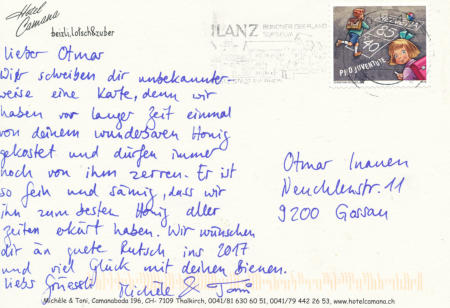 Hotel
Camana
beizli, lotsch&zuber
ILANZ
BÜNDNER OBERLAND
SURSELVA
PRO JUVENTUTE
Lieber Otmar
Wir schreiben dir unbekannter-
weise eine Karte, denn wir
haben vor langer Zeit einmal
von deinem wunderbaren Honig
gekostet und dürfen immer
noch von ihm zerren. Er ist
so fein und sämig, dass wir
ihn zum besten Honig aller
Zeiten erkärt haben. Wir wünschen
dir än guete Rutsch ins 2017
und viel Glück mit deinen Bienen.
Liebs Grüessli Michèle & Toni
Otmar Inauen
Neuchlenstr. 11
9200 Gossau
Michèle & Toni, Camanaboda 196, CH- 7109 Thalkirch, 0041/81 630 60 51, 0041/79 442 26 53, www.hotelcamana.ch